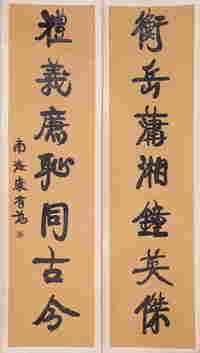 衡岳蕭湘鐘英傑
禮義廉恥同古今
南海康有為